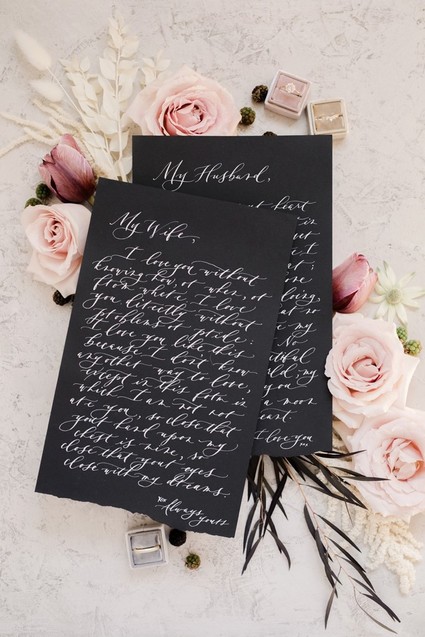 My Husband,
heart
in
my
No
my
you
a moon
I love you...
My Wife,
I love you without
knowing how, or when, or
from where. I love
you directly without
problems or pride.
I love you like this
because I don't know
any other way to love,
except in this form in
which I am not nor
are you, so close that
your hand upon my
chest is mine, so
close that your eyes
close with my dreams.
Always
yours